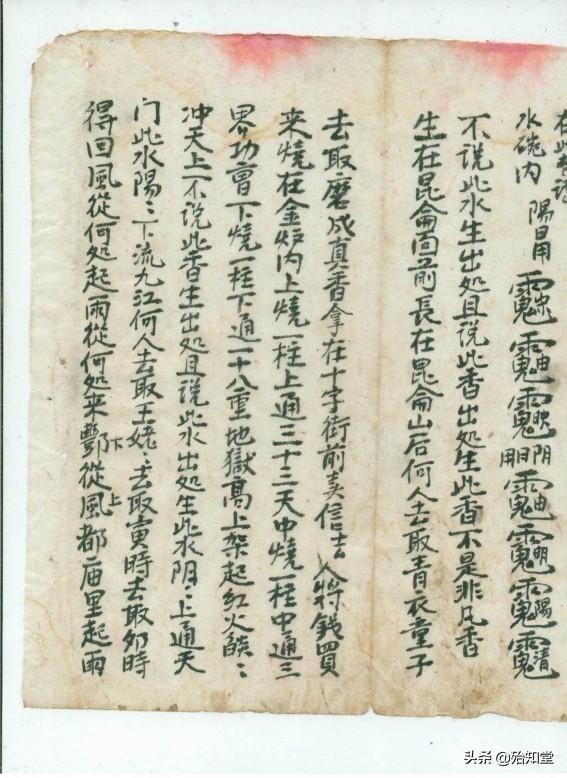 在此
水碗内 陽
不说此水生出処且说此香出処生此香不是非凡香
生在昆侖山前長在昆侖山后何人去取青衣童子
去取磨成真香拿在十字街前卖信士人将錢買
来燒在金炉内上燒一柱上通三十三天中燒一柱中通三
界功曹下燒一柱下通一十八重地獄高上架起红火燄〻
冲天上不说此香生出処且说此水出処生此水阴〻上通天
门此水陽〻下流九江何人去取王姥〻去取寅時去取卯時
得回風從何処起雨從何処来酆下從風上都庙里起雨
头条 @殆知堂